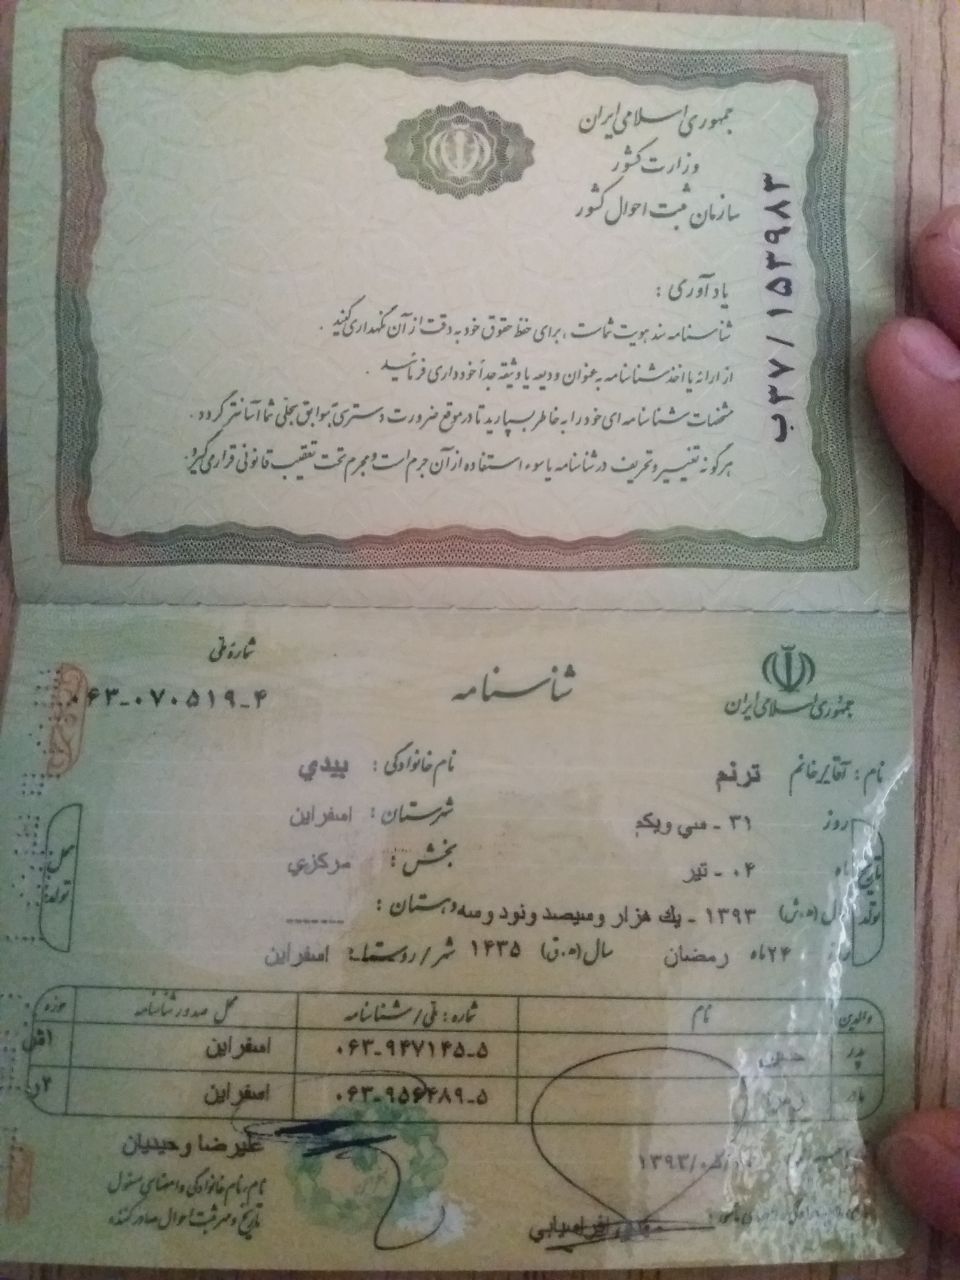 جمهوری اسلامی ایران
وزارت کشور
سازمان ثبت احوال کشور
ب۳۷/۱۵۳۹۸۳
یادآوری :
شناسنامه سند هویت شماست ، برای حفظ حقوق خود به دقت از آن نگهداری کنید .
از ارائه یا اخذ شناسنامه به عنوان ودیعه یا وثیقه جداً خودداری فرمائید .
مشخصات شناسنامه ای خود را به خاطر بسپارید تا در موقع ضرورت دسترسی به سوابق سجلی شما آسانتر گردد .
هرگونه تغییر و تحریف در شناسنامه یا سوء استفاده از آن جرم است و مجرم تحت تعقیب قانونی قرار می گیرد.
جمهوری اسلامی ایران
شناسنامه
شماره ملی
۰۶۳-۰۷۰۵۱۹-۴
نام : آقا یا خانم ترنم نام خانوادگی : بيدي
تاریخ تولد
روز ۳۱ - سي ويكم
ماه ۰۴ - تير
سال (ه.ش) ۱۳۹۳ - يك هزار وسيصد ونود وسه
روز ۲۴ ماه رمضان سال (ه.ق) ۱۴۳۵
محل تولد:
شهرستان : اسفراين
بخش : مركزي
دهستان : -------
شهر / روستا : اسفراين
والدین نام شماره : ملی / شناسنامه محل صدور شناسنامه حوزه
پدر ۰۶۳-۹۴۷۱۴۵-۵ اسفراين
مادر ۰۶۳-۹۵۶۴۸۹-۵ اسفراين
عليرضا وحيديان
نام، نام خانوادگی و امضای مسئول
تاریخ و مهر ثبت احوال صادر کننده